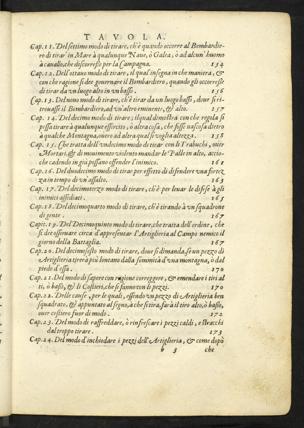 TAVOLA.
Cap. 11. Del settimo modo di tirare, ch'è quando occorre al Bombardie-
ro di tirar' in Mare à qualunque Naue, ò Galea, ò ad alcun' huomo
à cauallo, che discorresse per la Campagna. 154
Cap. 12. Dell'ottauo modo di tirare, il qual' insegna in che maniera, &
con che ragione si dee gouernar il Bombardiero, quando gli occorresse
di tirar da un luogo alto in un basso. 156
Cap. 13. Del nono modo di tirare, ch'è tirar da un luogo basso, doue si ri-
trouasse il Bombardiero, ad un'altro eminente, & alto. 157
Cap. 14. Del decimo modo di tirare; il qual dimostra con che regola si
possa tirare à qualunque esercito, ò altra cosa, che fusse nascosa dietro
à qualche Montagna, muro ad altra qual si uoglia altezza. 158
Cap. 15. Che tratta dell'undecimo modo di tirar con li Trabuchi, ouer
Mortari, & di mouimento uiolento mandar le Palle in alto, accio-
che cadendo in giù possano offender l'inimico. 161
Cap. 16. Del duodecimo modo di tirar per effetto di difendere una fortez
za in tempo di un'assalto. 163
Cap. 17. Del decimoterzo modo di tirare, ch'è per leuar le difese à gli
inimici assediati. 165
Cap. 18. Del decimoquarto modo di tirare, ch'è tirando à un squadrone
di gente. 167
Capit. 19. Del Decimoquinto modo di tirare, che tratta dell'ordine, che
si dee osseruare circa d'appresentar l'Artiglieria al Campo nemico il
giorno della Battaglia. 167
Cap. 20. Del decimosesto modo di tirare, doue si dimanda, se un pezzo di
Artiglieria tirerà più lontano dalla sommità d'una montagna, ò dal
piede d'essa. 170
Cap. 21. Del modo di sapere con ragione correggere, & emendare i tiri al-
ti, ò bassi, & di Costiera, che si fanno con li pezzi. 170
Cap. 22. Delle cause, per le quali, essendo un pezzo di Artiglieria ben
squadrato, & appuntato al segno, à che si tira, farà il tiro alto, ò basso,
ouer costiero fuor di modo. 172
Cap. 23. Del modo di raffreddare, ò rinfrescare i pezzi caldi, e stracchi
dal troppo tirare. 173
Cap. 24. Del modo d'inchiodare i pezzi dell'Artiglieria, & come dapò
b 3 che